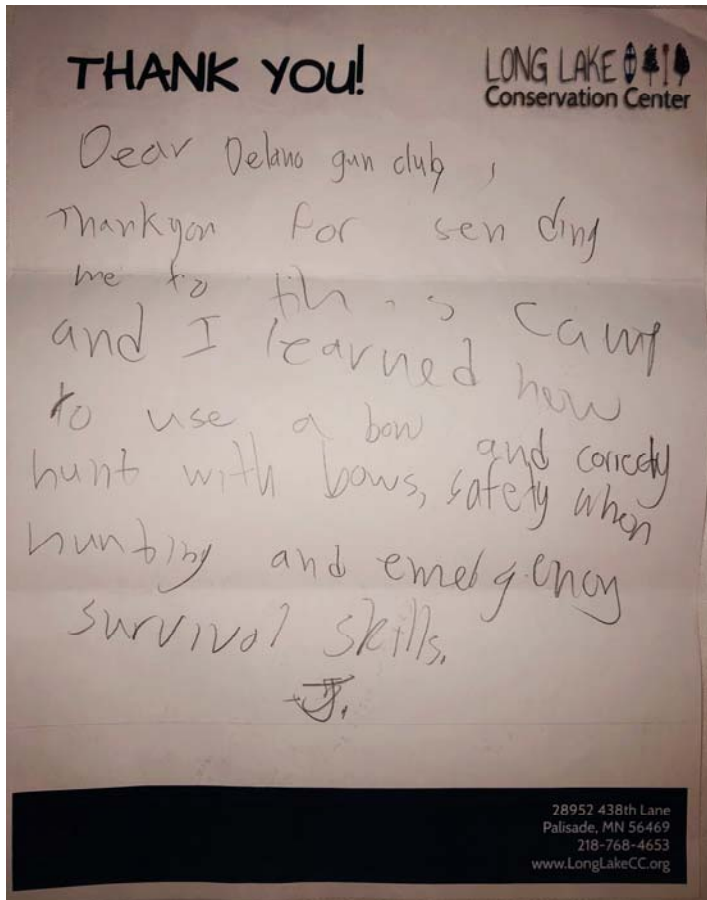 THANK YOU!
LONG LAKE
Conservation Center
Dear Delano gun club,
Thankyou for sending
me to this camp
and I learned how
to use a bow and correctly
hunt with bows, safety when
hunting and emergency
survival skills.
-J.
28952 438th Lane
Palisade, MN 56469
218-768-4653
www.LongLakeCC.org